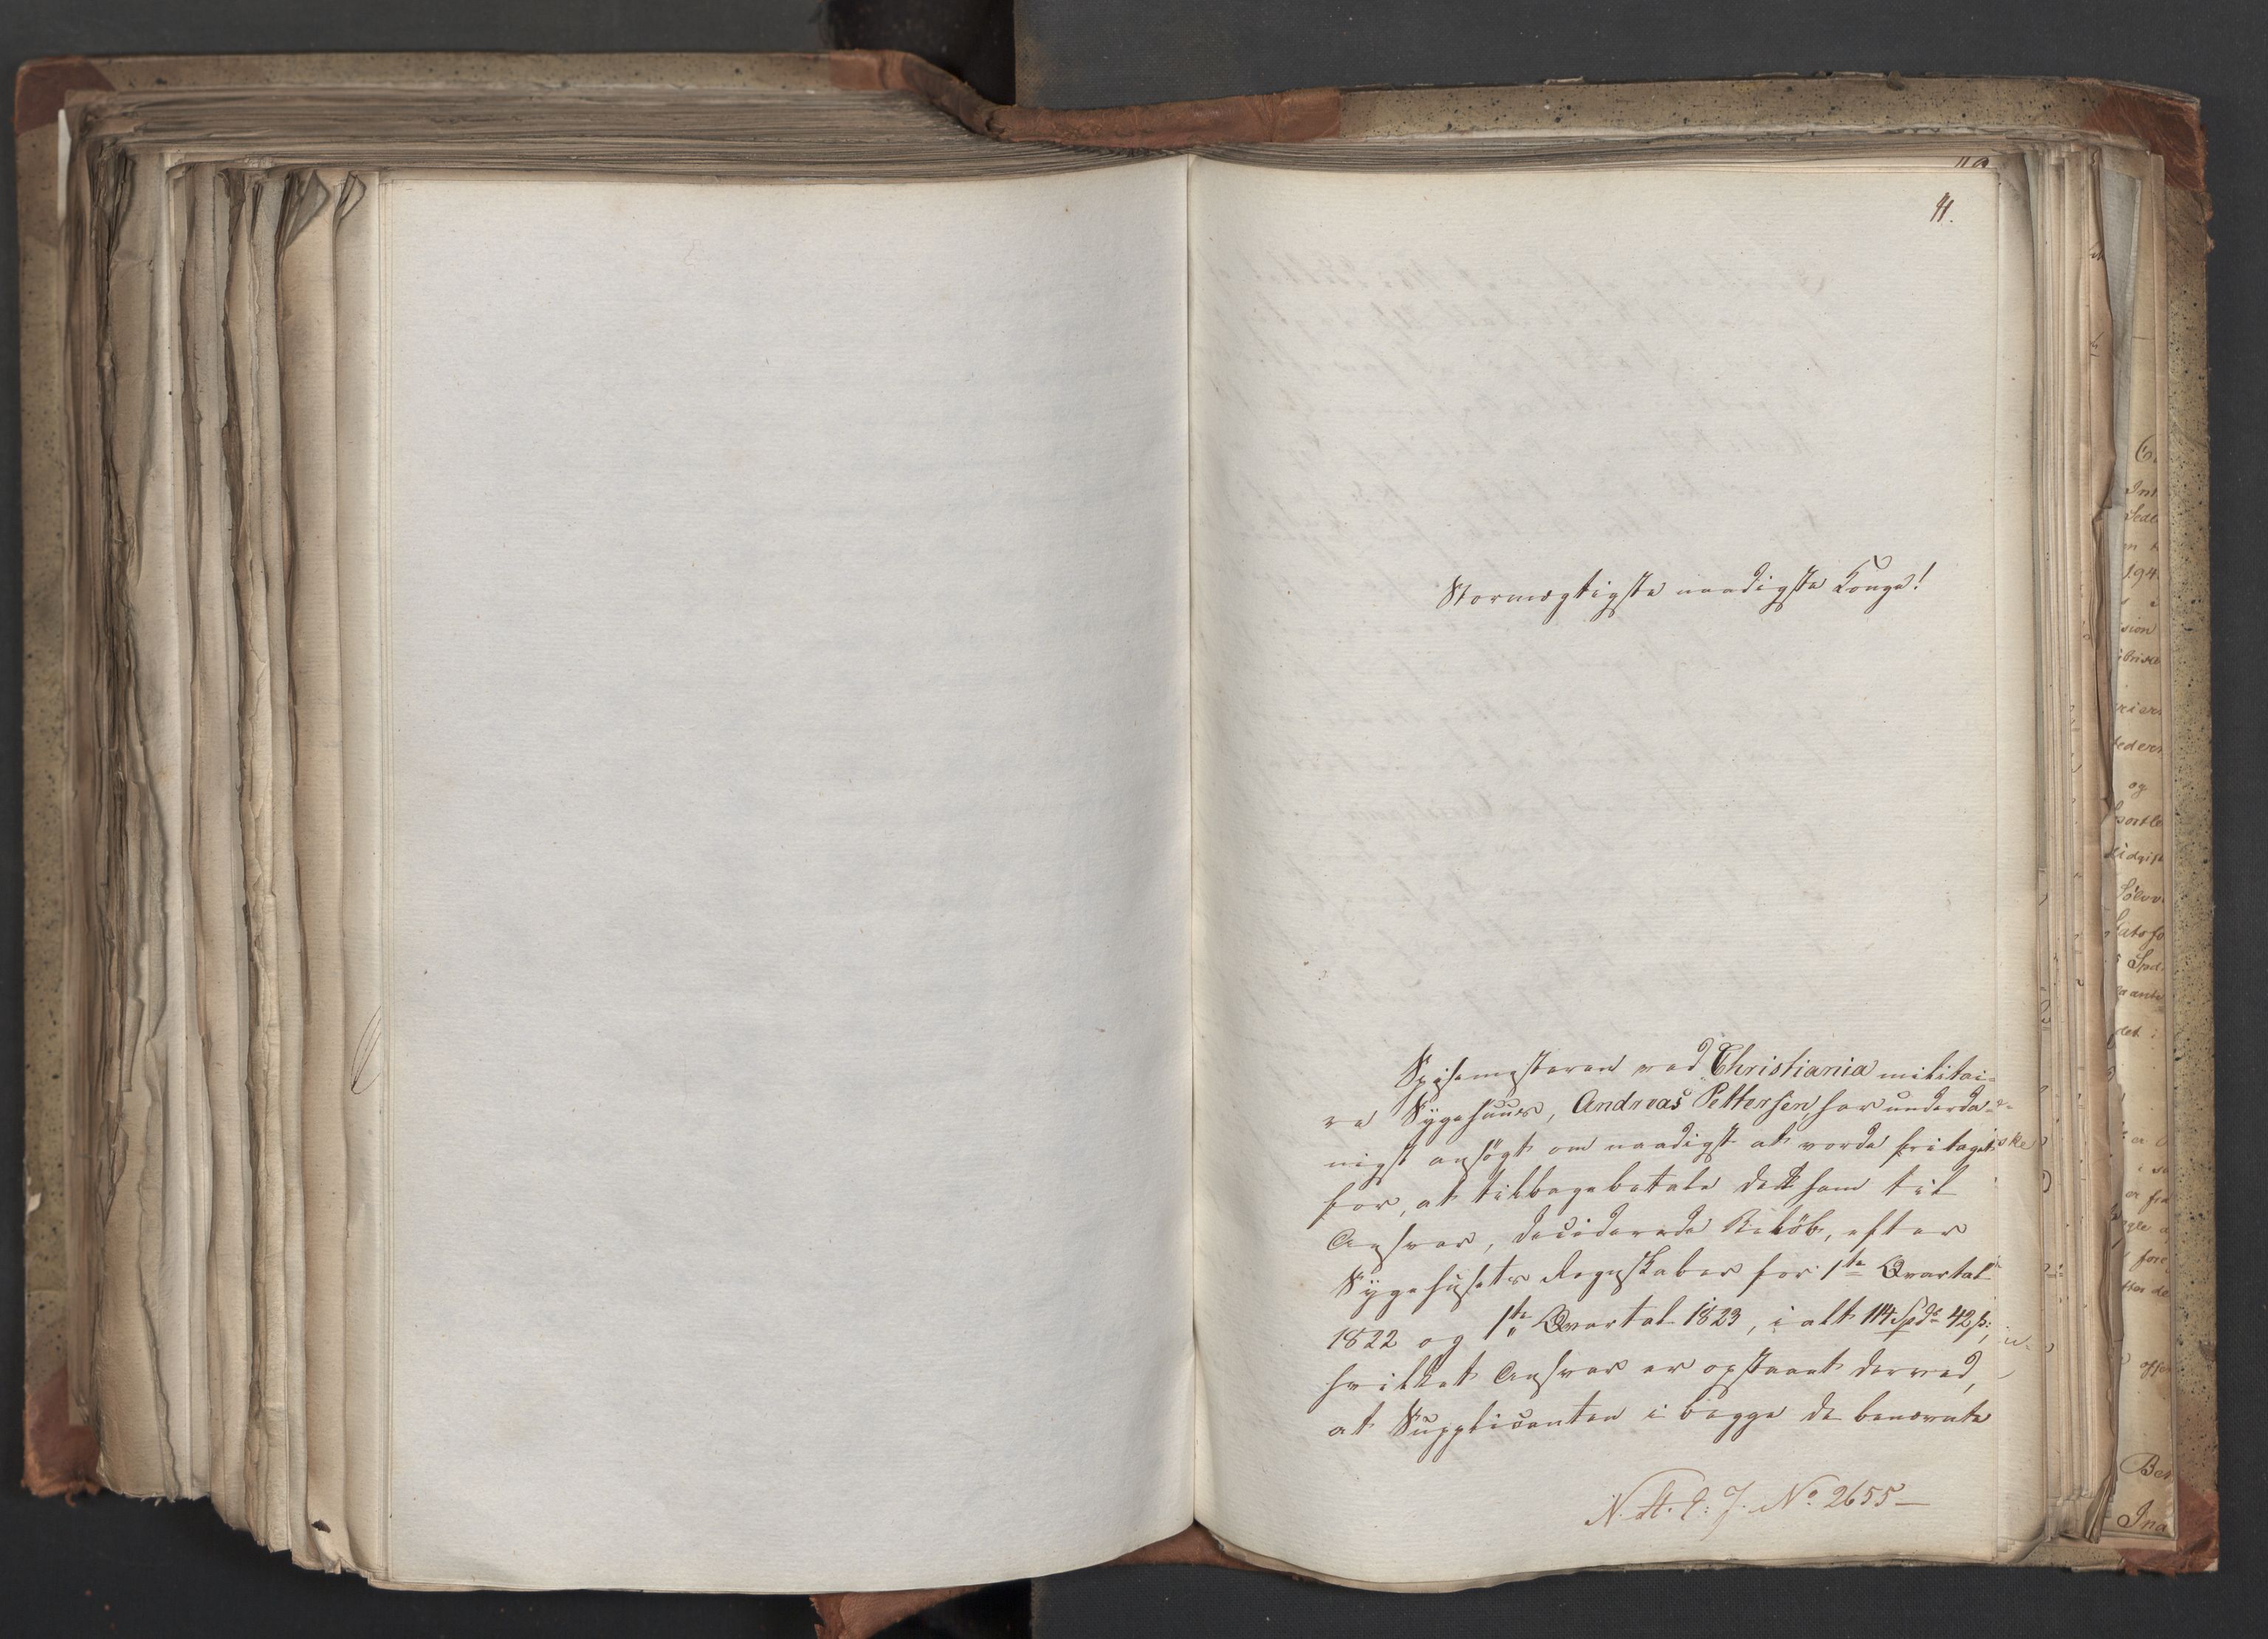 11.
Stormægtigste naadigste Konge!
Spisemesteren ved Christiania militai=
re Sygehuus, Andreas Pettersen, har underda=
nigst ansøgt om naadigst at vorde fritaget
for, at tilbagebetale dett som til
Ansvar, deciderede Beløb, efter
Sygehusets Regnskaber for 1te Qvartal
1822 og 1te Qvartal 1823, ialt 114 Spd 42 s;
hvilket Ansvar er opstaaet derved,
at Supplicanten i begge de benævnte
N. A. C: J. No 2655—